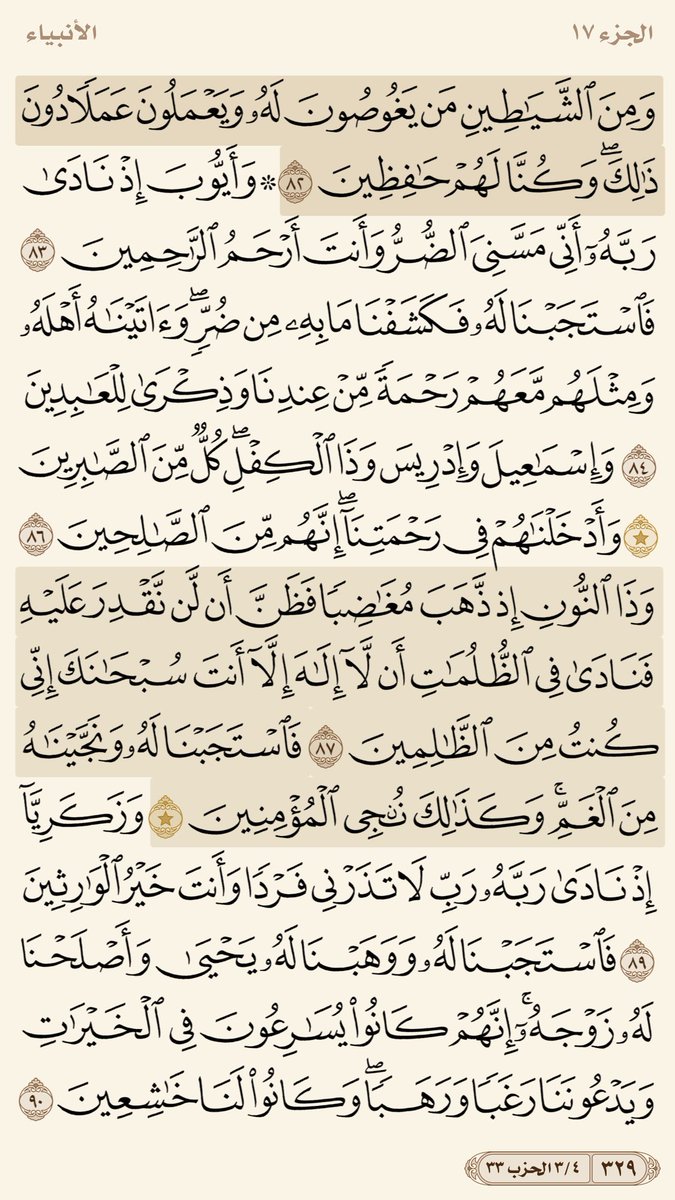 الجزء ١٧ الأنبياء
وَمِنَ ٱلشَّيَـٰطِينِ مَن يَغُوصُونَ لَهُۥ وَيَعْمَلُونَ عَمَلًا دُونَ
ذَٰلِكَۖ وَكُنَّا لَهُمْ حَـٰفِظِينَ ٨٢ ۞ وَأَيُّوبَ إِذْ نَادَىٰ
رَبَّهُۥٓ أَنِّي مَسَّنِيَ ٱلضُّرُّ وَأَنتَ أَرْحَمُ ٱلرَّٰحِمِينَ ٨٣
فَٱسْتَجَبْنَا لَهُۥ فَكَشَفْنَا مَا بِهِۦ مِن ضُرٍّۖ وَءَاتَيْنَـٰهُ أَهْلَهُۥ
وَمِثْلَهُم مَّعَهُمْ رَحْمَةً مِّنْ عِندِنَا وَذِكْرَىٰ لِلْعَـٰبِدِينَ
٨٤ وَإِسْمَـٰعِيلَ وَإِدْرِيسَ وَذَا ٱلْكِفْلِۖ كُلٌّ مِّنَ ٱلصَّـٰبِرِينَ
وَأَدْخَلْنَـٰهُمْ فِي رَحْمَتِنَآۖ إِنَّهُم مِّنَ ٱلصَّـٰلِحِينَ ٨٦
وَذَا ٱلنُّونِ إِذ ذَّهَبَ مُغَـٰضِبًا فَظَنَّ أَن لَّن نَّقْدِرَ عَلَيْهِ
فَنَادَىٰ فِي ٱلظُّلُمَـٰتِ أَن لَّآ إِلَـٰهَ إِلَّآ أَنتَ سُبْحَـٰنَكَ إِنِّي
كُنتُ مِنَ ٱلظَّـٰلِمِينَ ٨٧ فَٱسْتَجَبْنَا لَهُۥ وَنَجَّيْنَـٰهُ
مِنَ ٱلْغَمِّۚ وَكَذَٰلِكَ نُـۨجِي ٱلْمُؤْمِنِينَ وَزَكَرِيَّآ
إِذْ نَادَىٰ رَبَّهُۥ رَبِّ لَا تَذَرْنِي فَرْدًا وَأَنتَ خَيْرُ ٱلْوَٰرِثِينَ
٨٩ فَٱسْتَجَبْنَا لَهُۥ وَوَهَبْنَا لَهُۥ يَحْيَىٰ وَأَصْلَحْنَا
لَهُۥ زَوْجَهُۥٓۚ إِنَّهُمْ كَانُوا۟ يُسَـٰرِعُونَ فِي ٱلْخَيْرَٰتِ
وَيَدْعُونَنَا رَغَبًا وَرَهَبًاۖ وَكَانُوا۟ لَنَا خَـٰشِعِينَ ٩٠
٣٢٩ ٣/٤ الحزب ٣٣